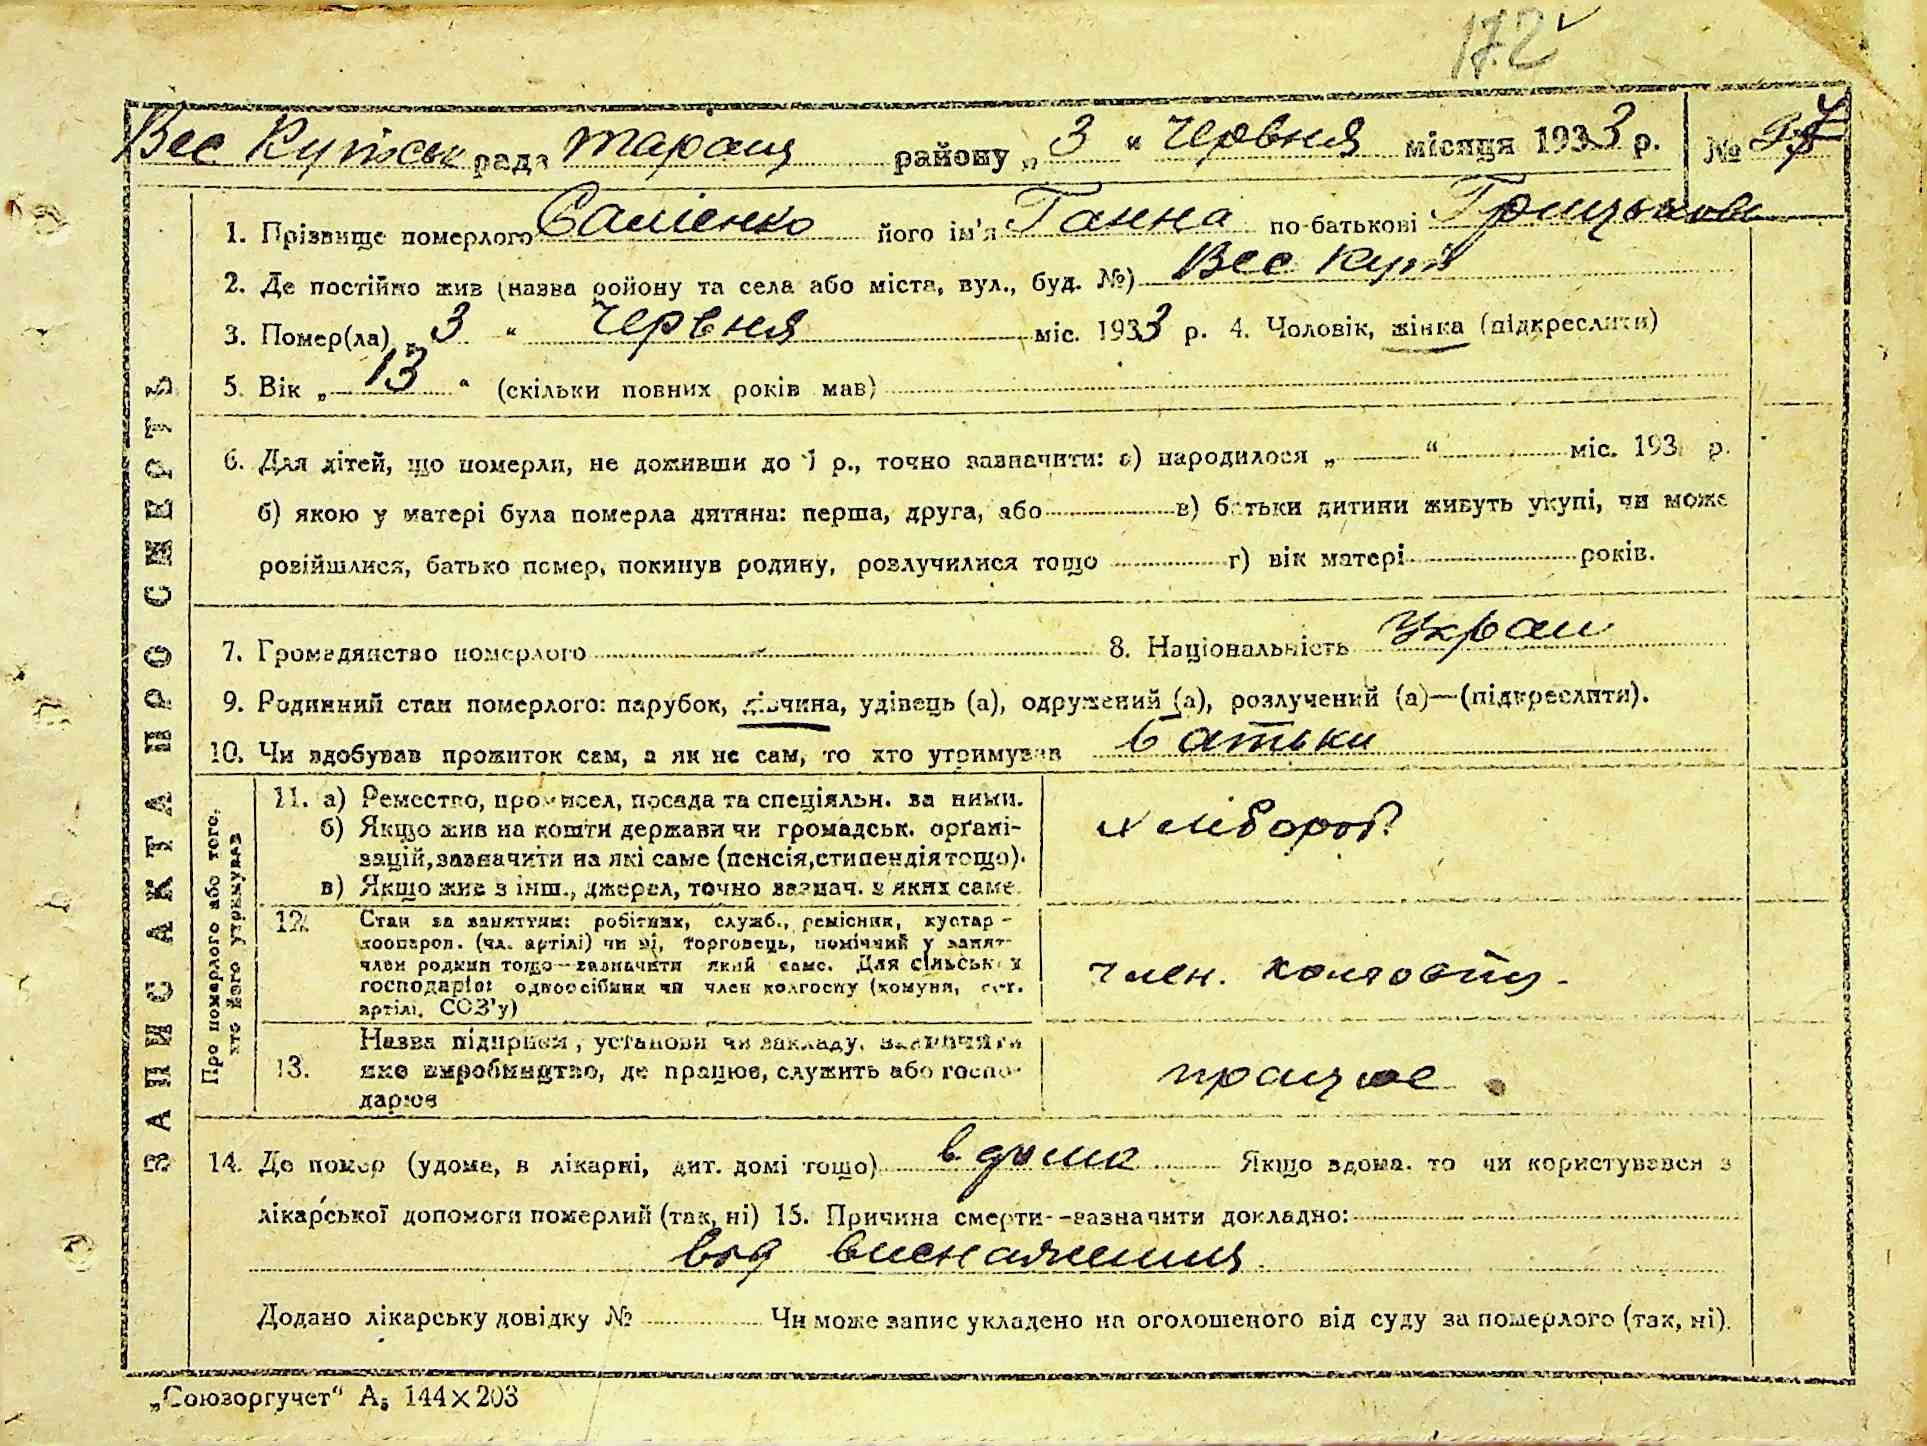 172
Вес Кутськ рада Таращ району „ 3 “ Червня місяця 1933 р. №
1. Прізвище померлого Саліенко його ім'я Ганна по-батькові Грицькова
2. Де постійно жив (назва району та села або міста, вул., буд. №) Вес Кут
3. Помер(ла) „ 3 “ Червня міс. 1933 р. 4. Чоловік, жінка (підкреслити)
5. Вік „ 13 “ (скільки повних років мав)
6. Для дітей, що померли, не доживши до 1 р., точно зазначити: а) народилося „ “ міс. 193 р.
б) якою у матері була померла дитина: перша, друга, або в) батьки дитини живуть укупі, чи може
розійшлися, батько помер, покинув родину, розлучилися тощо г) вік матері років.
7. Громадянство померлого 8. Національність Украін
9. Родинний стан померлого: парубок, дівчина, удівець (а), одружений (а), розлучений (а)—(підкреслити).
10. Чи здобував прожиток сам, а як не сам, то хто утримував батьки
ЗАПИС АКТА ПРО СМЕРТЬ
Про померлого або того,
хто його утримував
11. а) Ремество, промисел, посада та спеціяльн. за ними.
б) Якщо жив на кошти держави чи громадськ. орґані-
зацій, зазначити на які саме (пенсія, стипендія тощо).
в) Якщо жив з інш., джерел, точно зазнач. з яких саме.
хлібороб
12. Стан за заняттям: робітник, служб., ремісник, кустар -
кооперов. (чл. артілі) чи ні, торговець, помічний у занят-
член родини тощо—зазначити який саме. Для сільськ. у
господарів: одноосібник чи член колгоспу (комуни, с.-г.
артілі, СОЗ'у)
член. колгоспу.
13. Назва підприєм., установи чи закладу, зазначити
яке виробництво, де працює, служить або госпо-
дарює
працює
14. Де помер (удома, в лікарні, дит. домі тощо) в дома Якщо вдома, то чи користувався з
лікарської допомоги померлий (так, ні) 15. Причина смерти--зазначити докладно:
від виснаження
Додано лікарську довідку № Чи може запис укладено на оголошеного від суду за померлого (так, ні).
„Союзоргучет“ А₅ 144×203